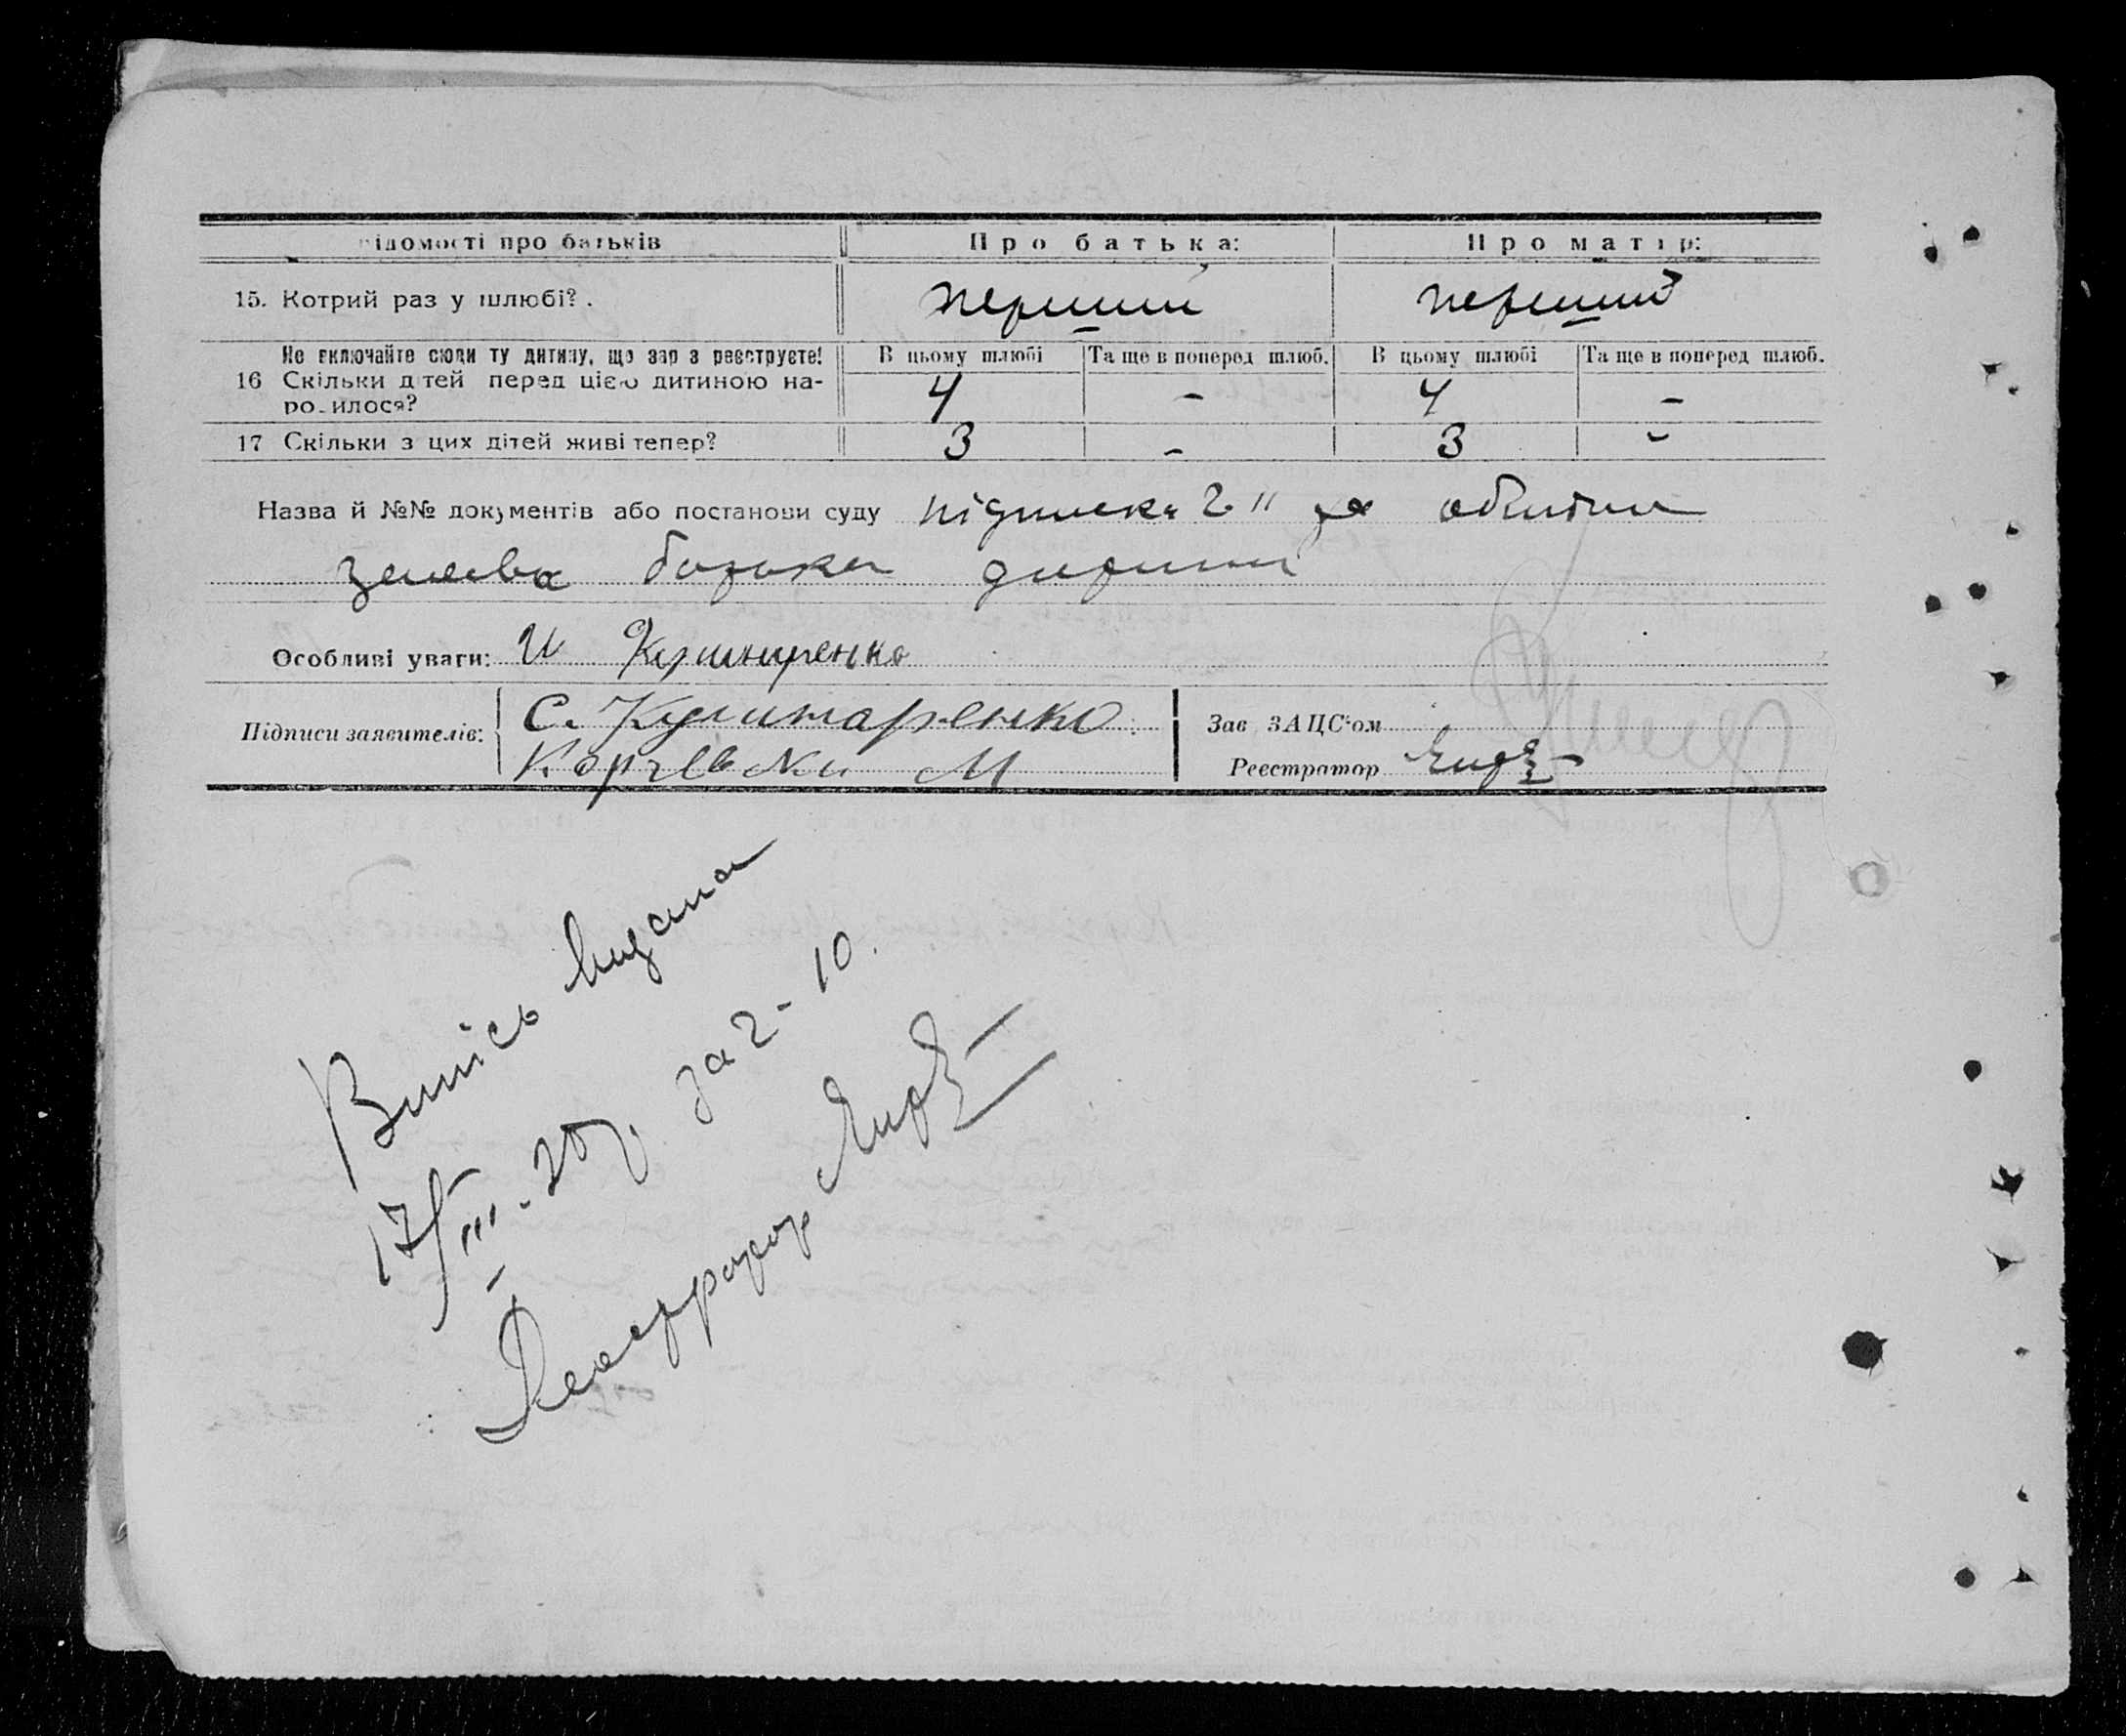 відомості про батьків Про батька: Про матір:
15. Котрий раз у шлюбі? перший перший
Не включайте сюди ту дитину, що зар з реєструєте! В цьому шлюбі Та ще в поперед шлюб. В цьому шлюбі Та ще в поперед шлюб.
16 Скільки дітей перед цією дитиною на-
родилося? 4 - 4 -
17 Скільки з цих дітей живі тепер? 3 - 3 -
Назва й №№ документів або постанови суду підписка 2"
батька дитини
Особливі уваги: И Кушниренко
Підписи заявителів: С. Кушнаренко Зав ЗАЦС'ом
М Реєстратор
Випісь видана
17/III-28 р. за 2-10.
Реєстратор